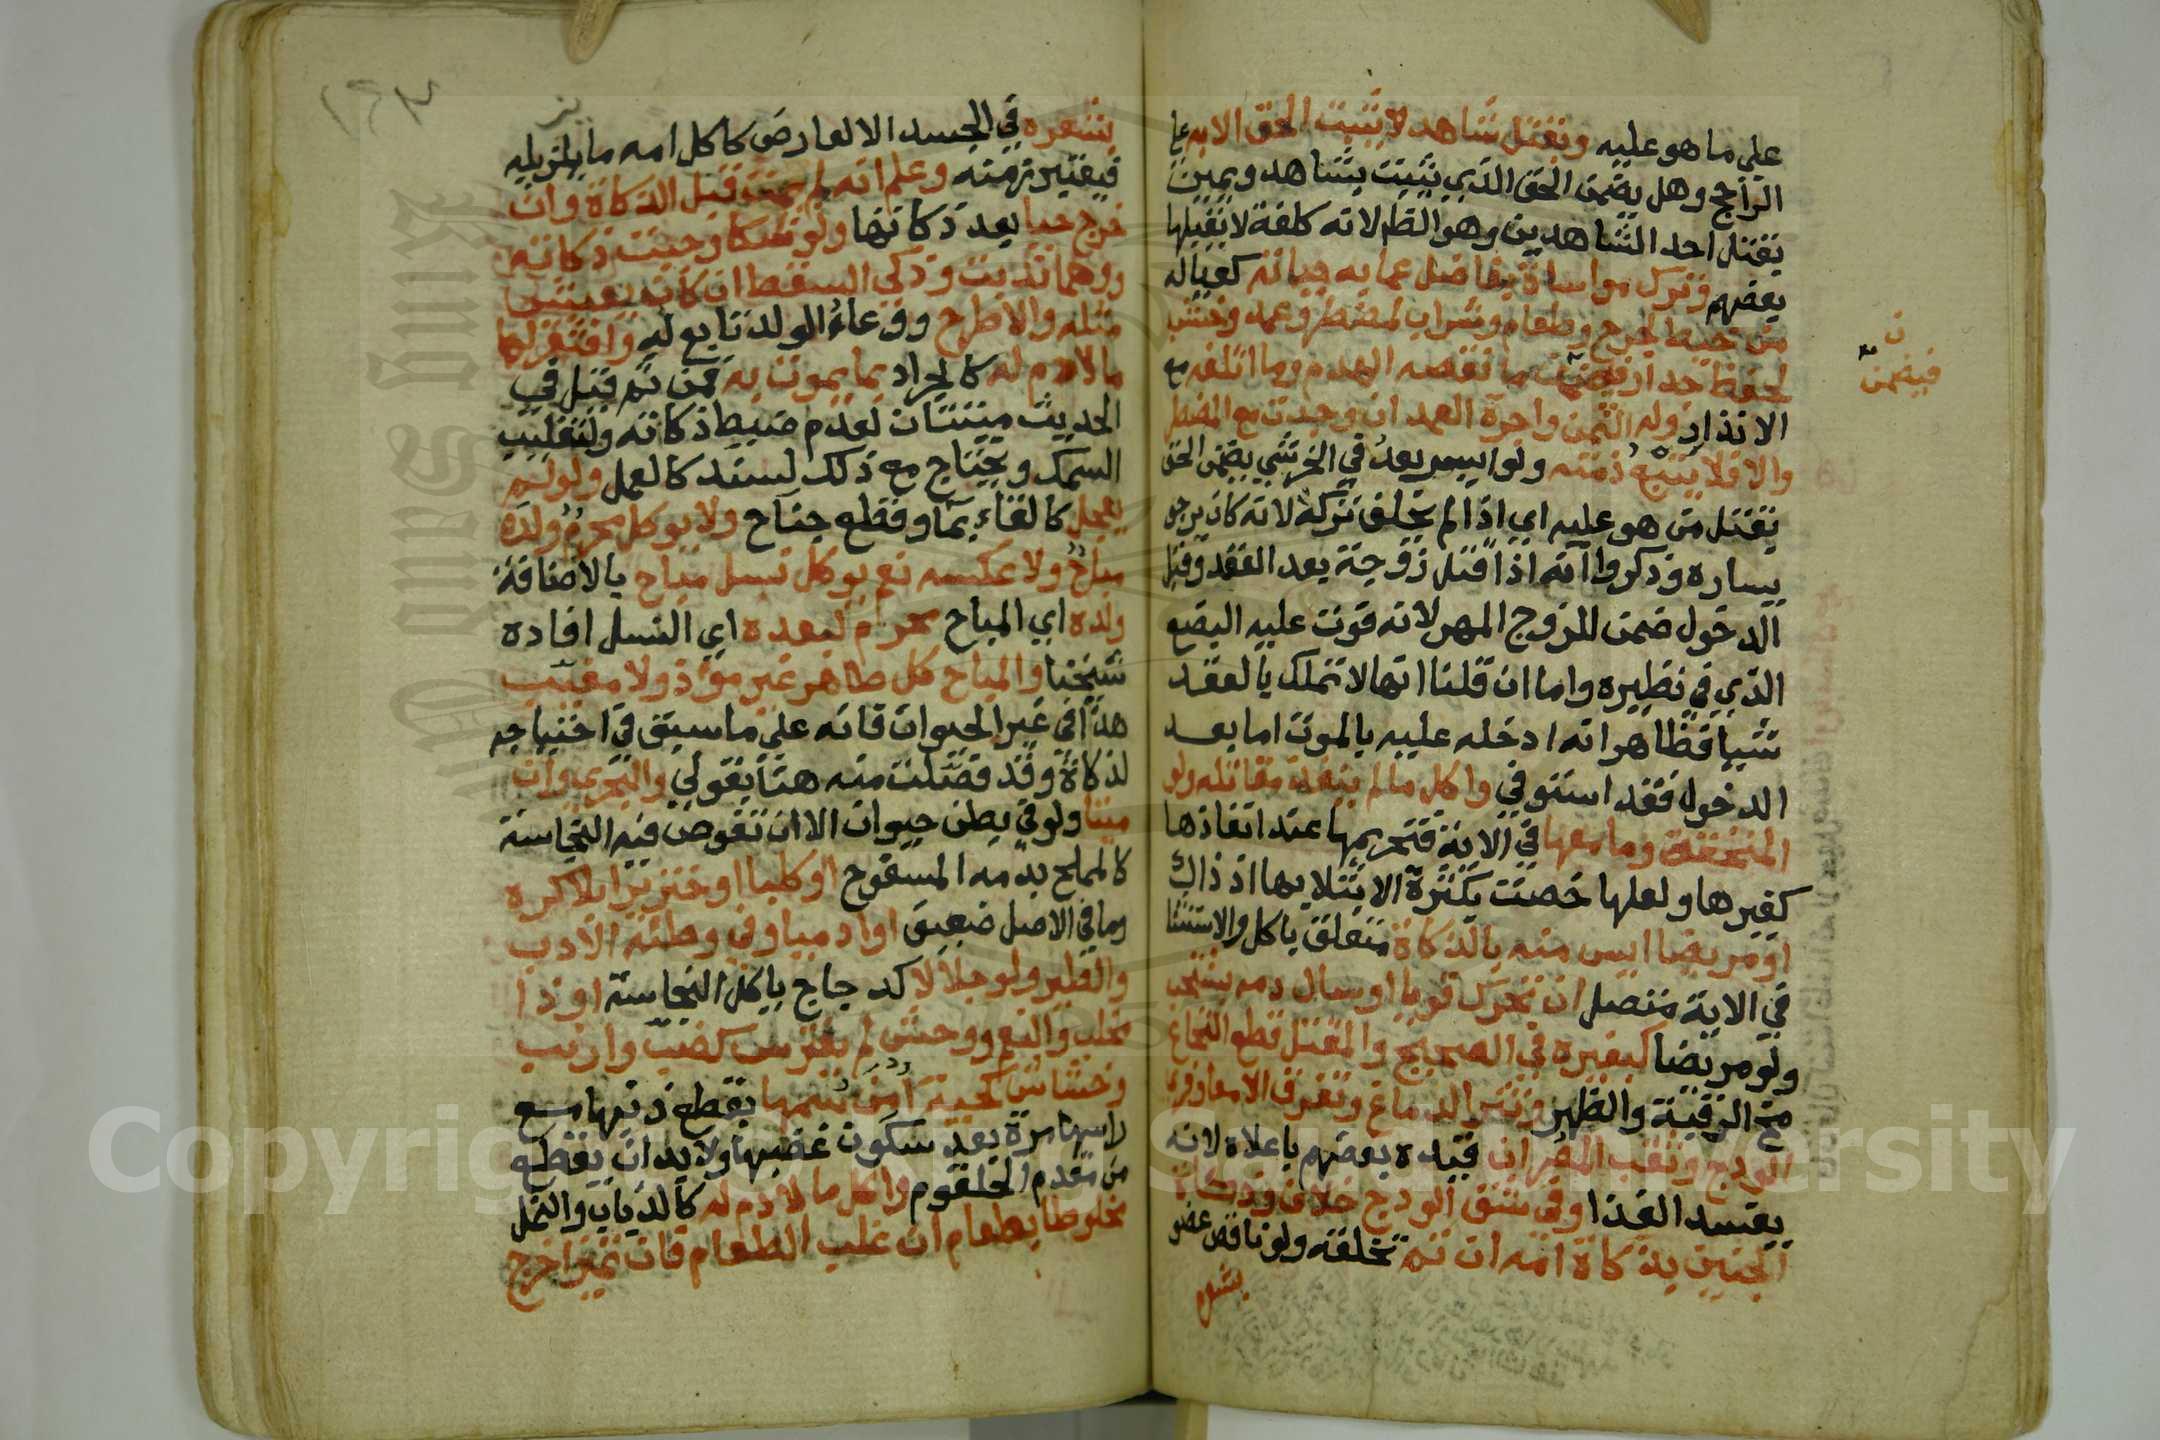 على ما هو عليه وبقتل شاهد لا يثبت الحق الا به على
الراجح وهل يضمن الحق الذي يثبت بشاهد ويمين
بقتل احد الشاهدين وهو الظ لانه كلفة لا يقبلها
بعضهم وترك مواساة بفاضل عما به حياته كعياله
من خيط لجرح وطعام وشراب لمضطر وعمد وخشب
لحفظ جدار فيضمن ما نقصه الهدم وما اتلفه مع
الانذار وله الثمن واجرة العمد ان وجدت مع المضطر
والا فلا يتبع ذمته ولو ايسر بعد في الخرشي يضمن الحق
بقتل من هو عليه اي اذا لم يخلف تركة لانه كان يرجى
يساره وذكروا انه اذا قتل زوجة بعد العقد وقبل
الدخول ضمن للزوج المهر لانه فوت عليه البضع
الذي في نظيره واما ان قلنا انها لا تملك بالعقد
شيا فظاهر انه ادخله عليه بالموت اما بعد
الدخول فقد استوفي واكل ما لم ينفذ مقاتله ولو
المنخنقة وما معها في الاية فتحريمها عند انفاذها
كغيرها ولعلها خصت بكثرة الابتلا بها اذ ذاك
او مريضا ايس منه بالذكاة متعلق باكل والاستثنا
في الاية متصل ان تحرك قويا او سال دمه بشخب
ولو مريضا كبغيره في الصحيح والمقتل قطع النخاع
مخ الرقبة والظهر ونثر الدماغ وتفرق الامعا وفري
الودج وثقب المصران قيده بعضهم باعلاه لانه
يفسد الغذا وفي شق الودج خلاف وذكاة
الجنين بذكاة امه ان تم تخلقه ولو ناقص عضو
بشعره
ن
فيضمن
بشعره في الجسد الا لعارض كاكل امه ما يزيله
فيعتبر زمنه وعلم انه لم يمت قبل الذكاة وان
خرج حيا بعد ذكاتها ولو شكا وجبت ذكاته
وهما ندبت وذكى السقط ان كان يعيش
مثله والا طرح ووعاء الولد تابع له وافتقر لها
ما لا دم له كالجراد بما يموت به فمن ثم قيل في
الحديث ميتتان لعدم ضبط ذكاته ولتغليب
السمك ويحتاج مع ذلك لسند كالعمل ولو لم
يعجل كالقاء بما وقطع جناح ولا يوكل محرم ولده
مباح ولا عكسه نعم يوكل نسل مباح بالاضافة
ولده اي المباح محرم لبعده اي النسل افاده
شيخنا والمباح كل طاهر غير موذ ولا مغيب
هذا في غير الحيوان فانه على ما سبق في احتياجه
لذكاة وقد فصلت منه هنا بقولي والبحري وان
ميتا ولو في بطن حيوان الا ان تغوص فيه النجاسة
كالمملح بدمه المسفوح او كلبا او خنزيرا بلا كره
وما في الاصل ضعيف او ادميا وفي وطئه الادب
والطير ولو جلالا كدجاج ياكل النجاسة او ذا
مخلب والنعم ووحش لم يفترس كضب وارنب
وخشاش كحية امن سمها بقطع ذنبها مع
راسها مرة بعد سكون غضبها ولا بد ان يقطع
من مقدم الحلقوم واكل ما لا دم له كالذباب والنمل
مخلوطا بطعام ان غلب الطعام فان تميز اخرج
King Saud University
Copyright © King Saud University